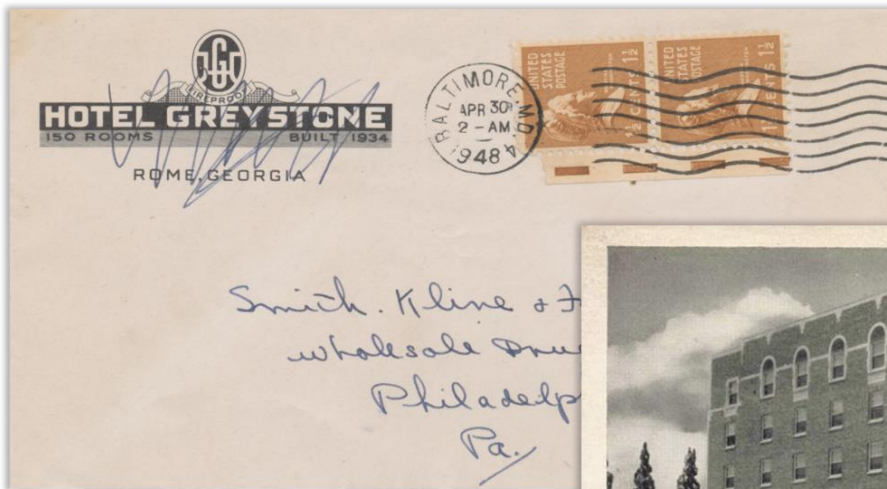 FIREPROOF
HOTEL GREYSTONE
150 ROOMS BUILT 1934
ROME, GEORGIA
BALTIMORE, MD. 4
APR 30
2 - AM
1948
UNITED
STATES
POSTAGE
1½ CENTS
UNITED
STATES
POSTAGE
1½ CENTS
Smith. Kline & F
wholesale Dru
Philadelp
Pa.